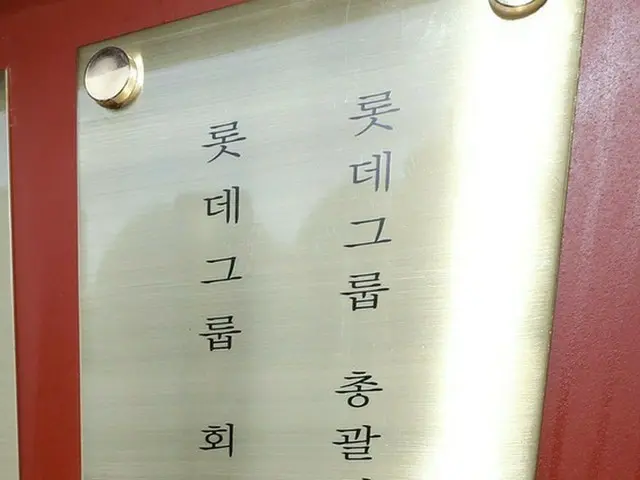 롯데그룹 총괄
롯데그룹 회